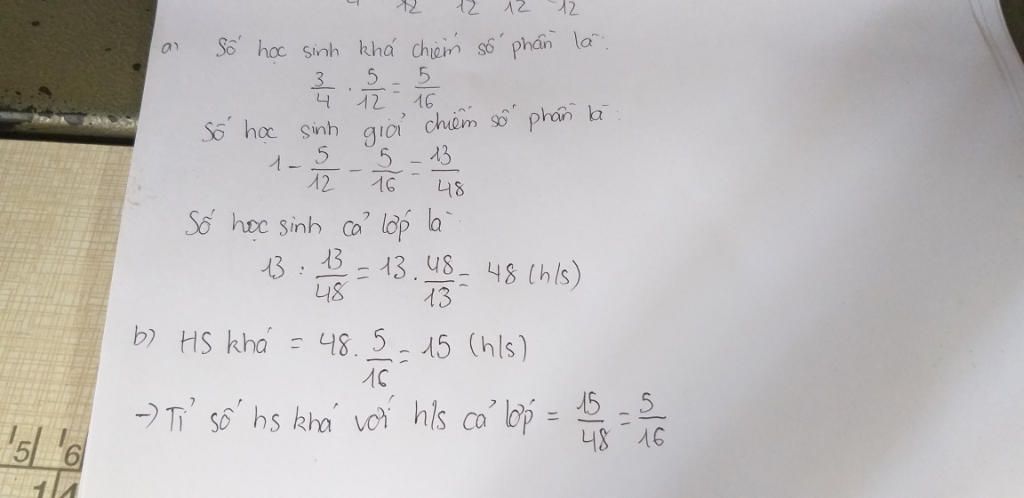 12 12 12 12
a) Số học sinh khá chiếm số phần là:
3/4 . 5/12 = 5/16
Số học sinh giỏi chiếm số phần là:
1 - 5/12 - 5/16 = 13/48
Số học sinh cả lớp là
13 : 13/48 = 13 . 48/13 = 48 (h/s)
b) HS khá = 48 . 5/16 = 15 (h/s)
→ Tỉ số hs khá với h/s cả lớp = 15/48 = 5/16
15 16